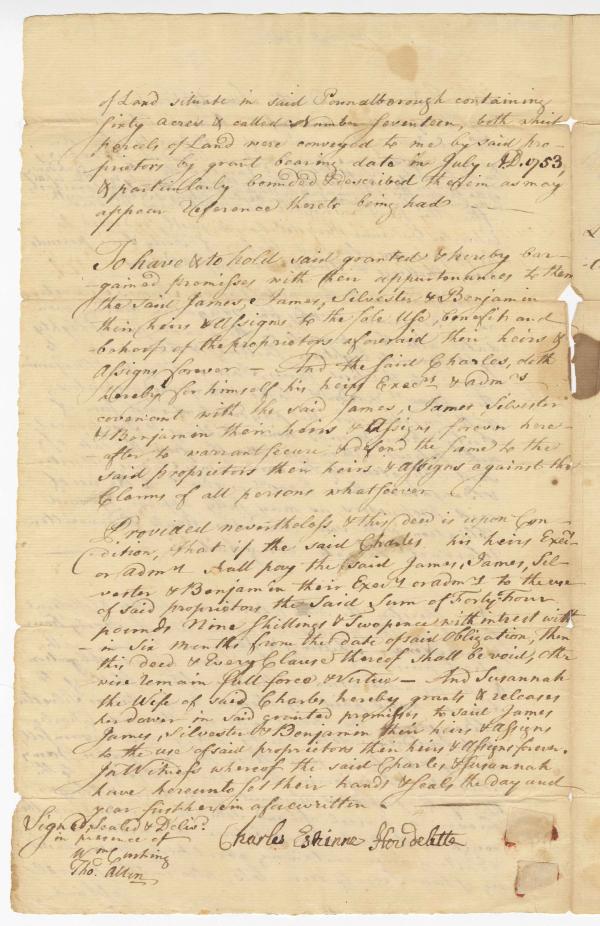 of Land situate in said Pownalborough containing
sixty acres & called Number Seventeen, both which
parcels of Land were conveyed to me by said pro-
prietors by grant bearing date in July A.D. 1753,
& particularly bounded & described therein as may
appear Reference thereto being had
To have & to hold said granted & hereby bar-
gained premisses with their appurtenances to them
the said James, James, Silvester & Benjamin
their heirs & Assigns to the sole Use, benefit and
behoof of the proprietors aforesaid their heirs &
Assigns forever — And the said Charles, doth
hereby for himself his heirs Execrs & admrs
covenant with the said James, James Silvester
& Benjamin their heirs & Assigns forever here-
after to warrant secure & defend the same to the
said proprietors their heirs & Assigns against the
Claims of all persons whatsoever
Provided nevertheless & this deed is upon Con-
dition, that if the said Charles his heirs Execrs
or admrs shall pay the said James, James, Sil-
vester & Benjamin their Execrs or admrs to the use
of said proprietors the said Sum of Forty-Four
pounds Nine Shillings & Two pence with intrest with
in Six months from the date of said Obligation, then
this deed & Every Clause thereof shall be void, othr
wise remain full force & virtue — And Susannah
the Wife of said Charles hereby grants & releases
her dower in said granted premisses to said James
James, Silvester & Benjamin their heirs & Assigns
to the use of said proprietors their heirs & Assigns forever.
In Witness whereof the said Charles & Susannah
have hereunto set their hands & seals the day and
year first herein aforewritten
Signed Sealed & Delivd.
in presence of
Wm Cushing
Tho. Allen
Charles Estienne Houdelette